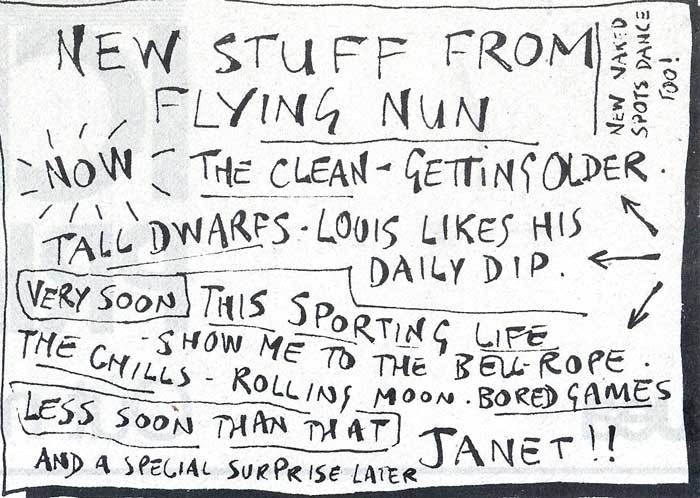 NEW STUFF FROM
FLYING NUN
NEW NAKED
SPOTS DANCE
TOO!
NOW THE CLEAN - GETTING OLDER.
TALL DWARFS - LOUIS LIKES HIS
DAILY DIP.
VERY SOON THIS SPORTING LIFE
- SHOW ME TO THE BELL-ROPE.
THE CHILLS - ROLLING MOON. BORED GAMES
LESS SOON THAN THAT JANET!!
AND A SPECIAL SURPRISE LATER